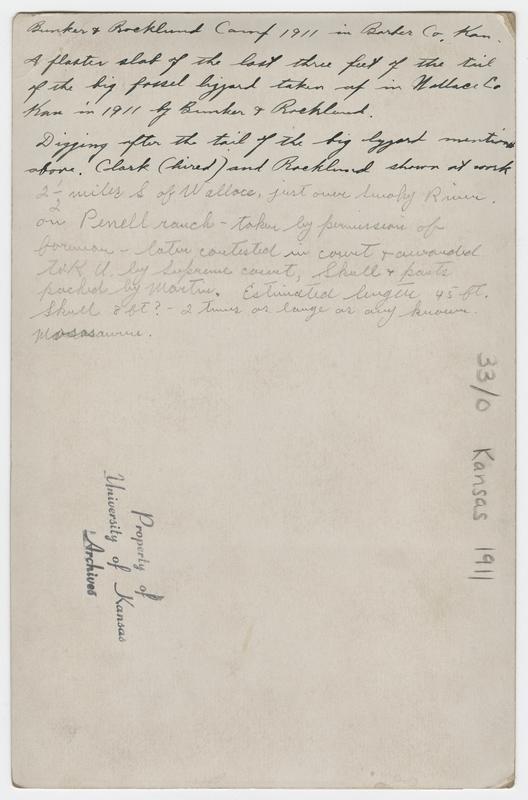 Bunker & Rocklund Camp 1911 in Barber Co, Kan.
A plaster slab of the last three feet of the tail
of the big fossel lizzard taken up in Wallace Co
Kan in 1911 by Bunker & Rocklund.
Digging after the tail of the big lyzard mention
above. Clark (hired) and Rocklund shown at work
2 1/2 miles S of Wallace, just over Smoky River.
on Penell ranch - taken by permission of
foreman - later contested in court & awarded
to K.U. by Supreme court, Skull & parts
packed by Martin. Estimated length 45 ft.
Skull 8 ft? - 2 times as large as any known
Mosasaurus.
33/0 Kansas 1911
Property of
University of Kansas
Archives